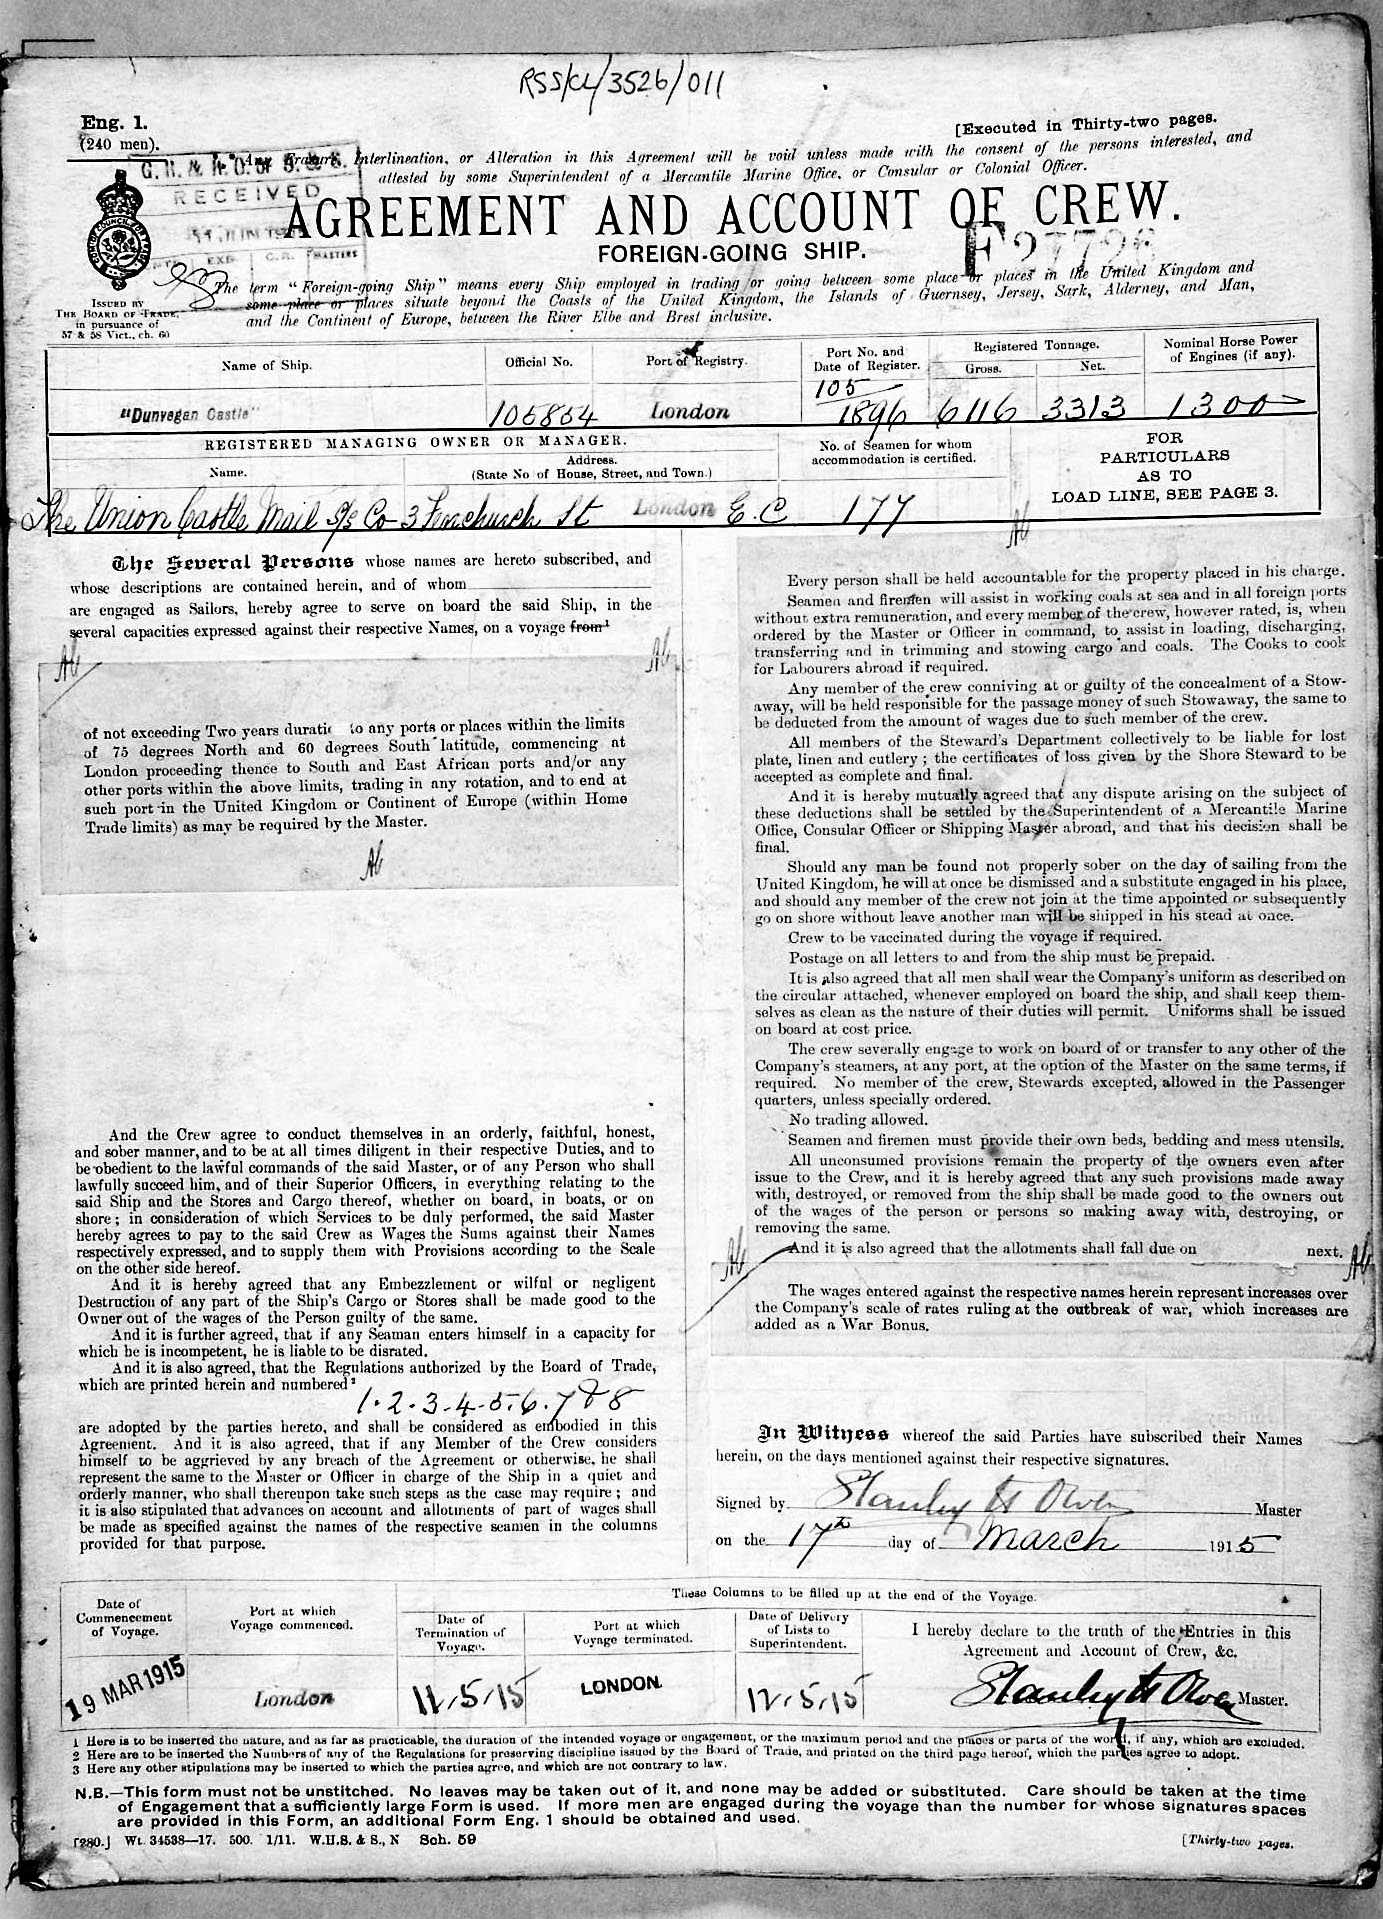 RSS/CL/3526/011
Eng. 1.
(240 men).
[Executed in Thirty-two pages.
Any Erasure, Interlineation, or Alteration in this Agreement will be void unless made with the consent of the persons interested, and
attested by some Superintendent of a Mercantile Marine Office, or Consular or Colonial Officer.
RECEIVED
AGREEMENT AND ACCOUNT OF CREW.
FOREIGN-GOING SHIP.
The term "Foreign-going Ship" means every Ship employed in trading or going between some place or places in the United Kingdom and
some place or places situate beyond the Coasts of the United Kingdom, the Islands of Guernsey, Jersey, Sark, Alderney, and Man,
and the Continent of Europe, between the River Elbe and Brest inclusive.
ISSUED BY
THE BOARD OF TRADE,
in pursuance of
57 & 58 Vict., ch. 60
Name of Ship.
Official No.
Port of Registry.
Port No. and
Date of Register.
Registered Tonnage.
Gross.
Net.
Nominal Horse Power
of Engines (if any).
"Dunvegan Castle"
105854
London
105
1896
6116
3313
1300
REGISTERED MANAGING OWNER OR MANAGER.
Name.
Address.
(State No of House, Street, and Town.)
No. of Seamen for whom
accommodation is certified.
FOR
PARTICULARS
AS TO
LOAD LINE, SEE PAGE 3.
The Union Castle Mail S/S Co 3 Fenchurch St London E.C
177
The Several Persons whose names are hereto subscribed, and
whose descriptions are contained herein, and of whom
are engaged as Sailors, hereby agree to serve on board the said Ship, in the
several capacities expressed against their respective Names, on a voyage from¹
of not exceeding Two years durati to any ports or places within the limits
of 75 degrees North and 60 degrees South latitude, commencing at
London proceeding thence to South and East African ports and/or any
other ports within the above limits, trading in any rotation, and to end at
such port in the United Kingdom or Continent of Europe (within Home
Trade limits) as may be required by the Master.
And the Crew agree to conduct themselves in an orderly, faithful, honest,
and sober manner, and to be at all times diligent in their respective Duties, and to
be obedient to the lawful commands of the said Master, or of any Person who shall
lawfully succeed him, and of their Superior Officers, in everything relating to the
said Ship and the Stores and Cargo thereof, whether on board, in boats, or on
shore; in consideration of which Services to be duly performed, the said Master
hereby agrees to pay to the said Crew as Wages the Sums against their Names
respectively expressed, and to supply them with Provisions according to the Scale
on the other side hereof.
And it is hereby agreed that any Embezzlement or wilful or negligent
Destruction of any part of the Ship's Cargo or Stores shall be made good to the
Owner out of the wages of the Person guilty of the same.
And it is further agreed, that if any Seaman enters himself in a capacity for
which he is incompetent, he is liable to be disrated.
And it is also agreed, that the Regulations authorized by the Board of Trade,
which are printed herein and numbered²
1.2.3.4.5.6.7 & 8
are adopted by the parties hereto, and shall be considered as embodied in this
Agreement. And it is also agreed, that if any Member of the Crew considers
himself to be aggrieved by any breach of the Agreement or otherwise, he shall
represent the same to the Master or Officer in charge of the Ship in a quiet and
orderly manner, who shall thereupon take such steps as the case may require; and
it is also stipulated that advances on account and allotments of part of wages shall
be made as specified against the names of the respective seamen in the columns
provided for that purpose.
Every person shall be held accountable for the property placed in his charge.
Seamen and firemen will assist in working coals at sea and in all foreign ports
without extra remuneration, and every member of the crew, however rated, is, when
ordered by the Master or Officer in command, to assist in loading, discharging,
transferring and in trimming and stowing cargo and coals. The Cooks to cook
for Labourers abroad if required.
Any member of the crew conniving at or guilty of the concealment of a Stow-
away, will be held responsible for the passage money of such Stowaway, the same to
be deducted from the amount of wages due to such member of the crew.
All members of the Steward's Department collectively to be liable for lost
plate, linen and cutlery; the certificates of loss given by the Shore Steward to be
accepted as complete and final.
And it is hereby mutually agreed that any dispute arising on the subject of
these deductions shall be settled by the Superintendent of a Mercantile Marine
Office, Consular Officer or Shipping Master abroad, and that his decision shall be
final.
Should any man be found not properly sober on the day of sailing from the
United Kingdom, he will at once be dismissed and a substitute engaged in his place,
and should any member of the crew not join at the time appointed or subsequently
go on shore without leave another man will be shipped in his stead at once.
Crew to be vaccinated during the voyage if required.
Postage on all letters to and from the ship must be prepaid.
It is also agreed that all men shall wear the Company's uniform as described on
the circular attached, whenever employed on board the ship, and shall keep them-
selves as clean as the nature of their duties will permit. Uniforms shall be issued
on board at cost price.
The crew severally engage to work on board of or transfer to any other of the
Company's steamers, at any port, at the option of the Master on the same terms, if
required. No member of the crew, Stewards excepted, allowed in the Passenger
quarters, unless specially ordered.
No trading allowed.
Seamen and firemen must provide their own beds, bedding and mess utensils.
All unconsumed provisions remain the property of the owners even after
issue to the Crew, and it is hereby agreed that any such provisions made away
with, destroyed, or removed from the ship shall be made good to the owners out
of the wages of the person or persons so making away with, destroying, or
removing the same.
And it is also agreed that the allotments shall fall due on next.
The wages entered against the respective names herein represent increases over
the Company's scale of rates ruling at the outbreak of war, which increases are
added as a War Bonus.
In Witness whereof the said Parties have subscribed their Names
herein, on the days mentioned against their respective signatures.
Signed by Stanley H Owen Master
on the 17th day of March 1915
These Columns to be filled up at the end of the Voyage.
Date of
Commencement
of Voyage.
Port at which
Voyage commenced.
Date of
Termination of
Voyage.
Port at which
Voyage terminated.
Date of Delivery
of Lists to
Superintendent.
I hereby declare to the truth of the Entries in this
Agreement and Account of Crew, &c.
19 MAR 1915
London
11.5.15
LONDON
12.5.15
Stanley H Owen Master.
1 Here is to be inserted the nature, and as far as practicable, the duration of the intended voyage or engagement, or the maximum period and the places or parts of the world, if any, which are excluded.
2 Here are to be inserted the Numbers of any of the Regulations for preserving discipline issued by the Board of Trade, and printed on the third page hereof, which the parties agree to adopt.
3 Here any other stipulations may be inserted to which the parties agree, and which are not contrary to law.
N.B.—This form must not be unstitched. No leaves may be taken out of it, and none may be added or substituted. Care should be taken at the time
of Engagement that a sufficiently large Form is used. If more men are engaged during the voyage than the number for whose signatures spaces
are provided in this Form, an additional Form Eng. 1 should be obtained and used.
[280.] Wt. 34538—17. 500. 1/11. W.H.S. & S., N Sch. 59
[Thirty-two pages.